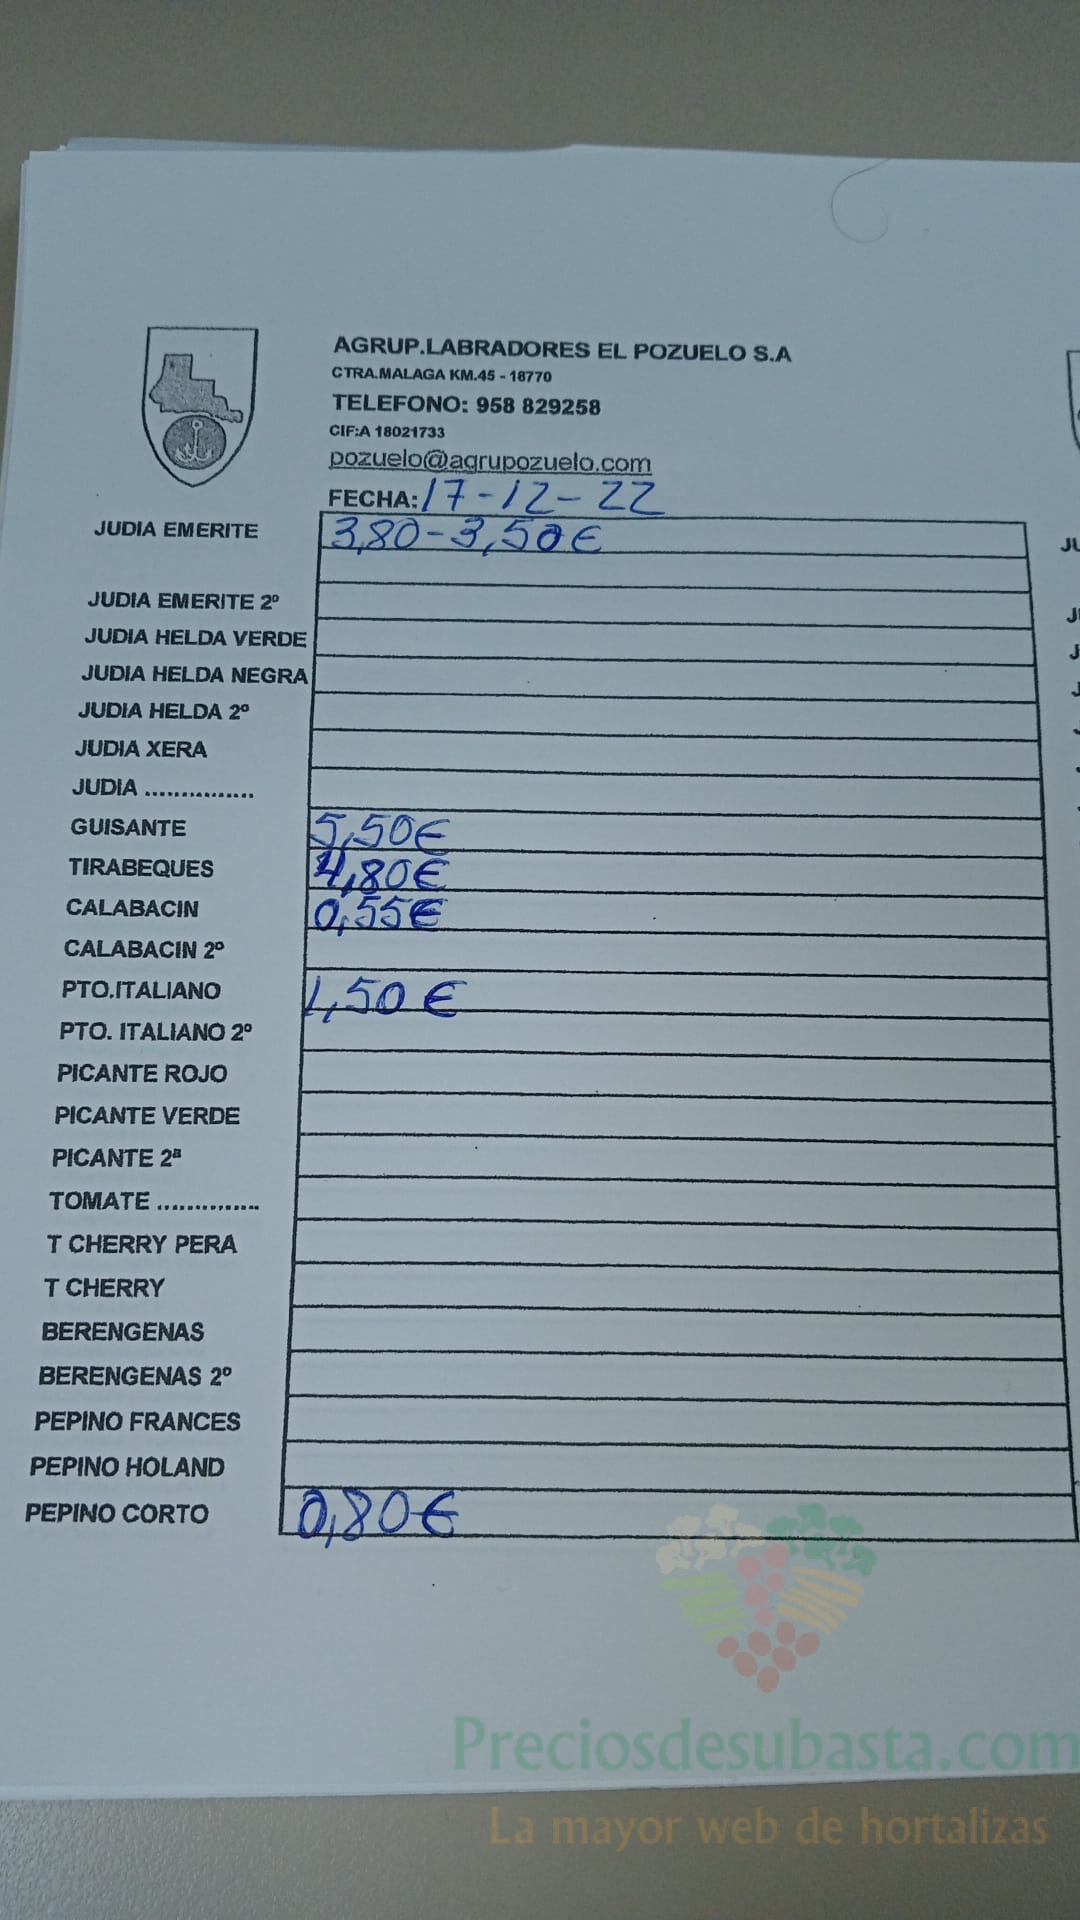 AGRUP.LABRADORES EL POZUELO S.A
CTRA.MALAGA KM.45 - 18770
TELEFONO: 958 829258
CIF:A 18021733
pozuelo@agrupozuelo.com
FECHA: 17-12-22
JUDIA EMERITE 3,80-3,50€
JUDIA EMERITE 2º
JUDIA HELDA VERDE
JUDIA HELDA NEGRA
JUDIA HELDA 2º
JUDIA XERA
JUDIA ...............
GUISANTE 5,50€
TIRABEQUES 4,80€
CALABACIN 0,55€
CALABACIN 2º
PTO.ITALIANO 1,50 €
PTO. ITALIANO 2º
PICANTE ROJO
PICANTE VERDE
PICANTE 2ª
TOMATE ..............
T CHERRY PERA
T CHERRY
BERENGENAS
BERENGENAS 2º
PEPINO FRANCES
PEPINO HOLAND
PEPINO CORTO 0,80€
Preciosdesubasta.com
La mayor web de hortalizas